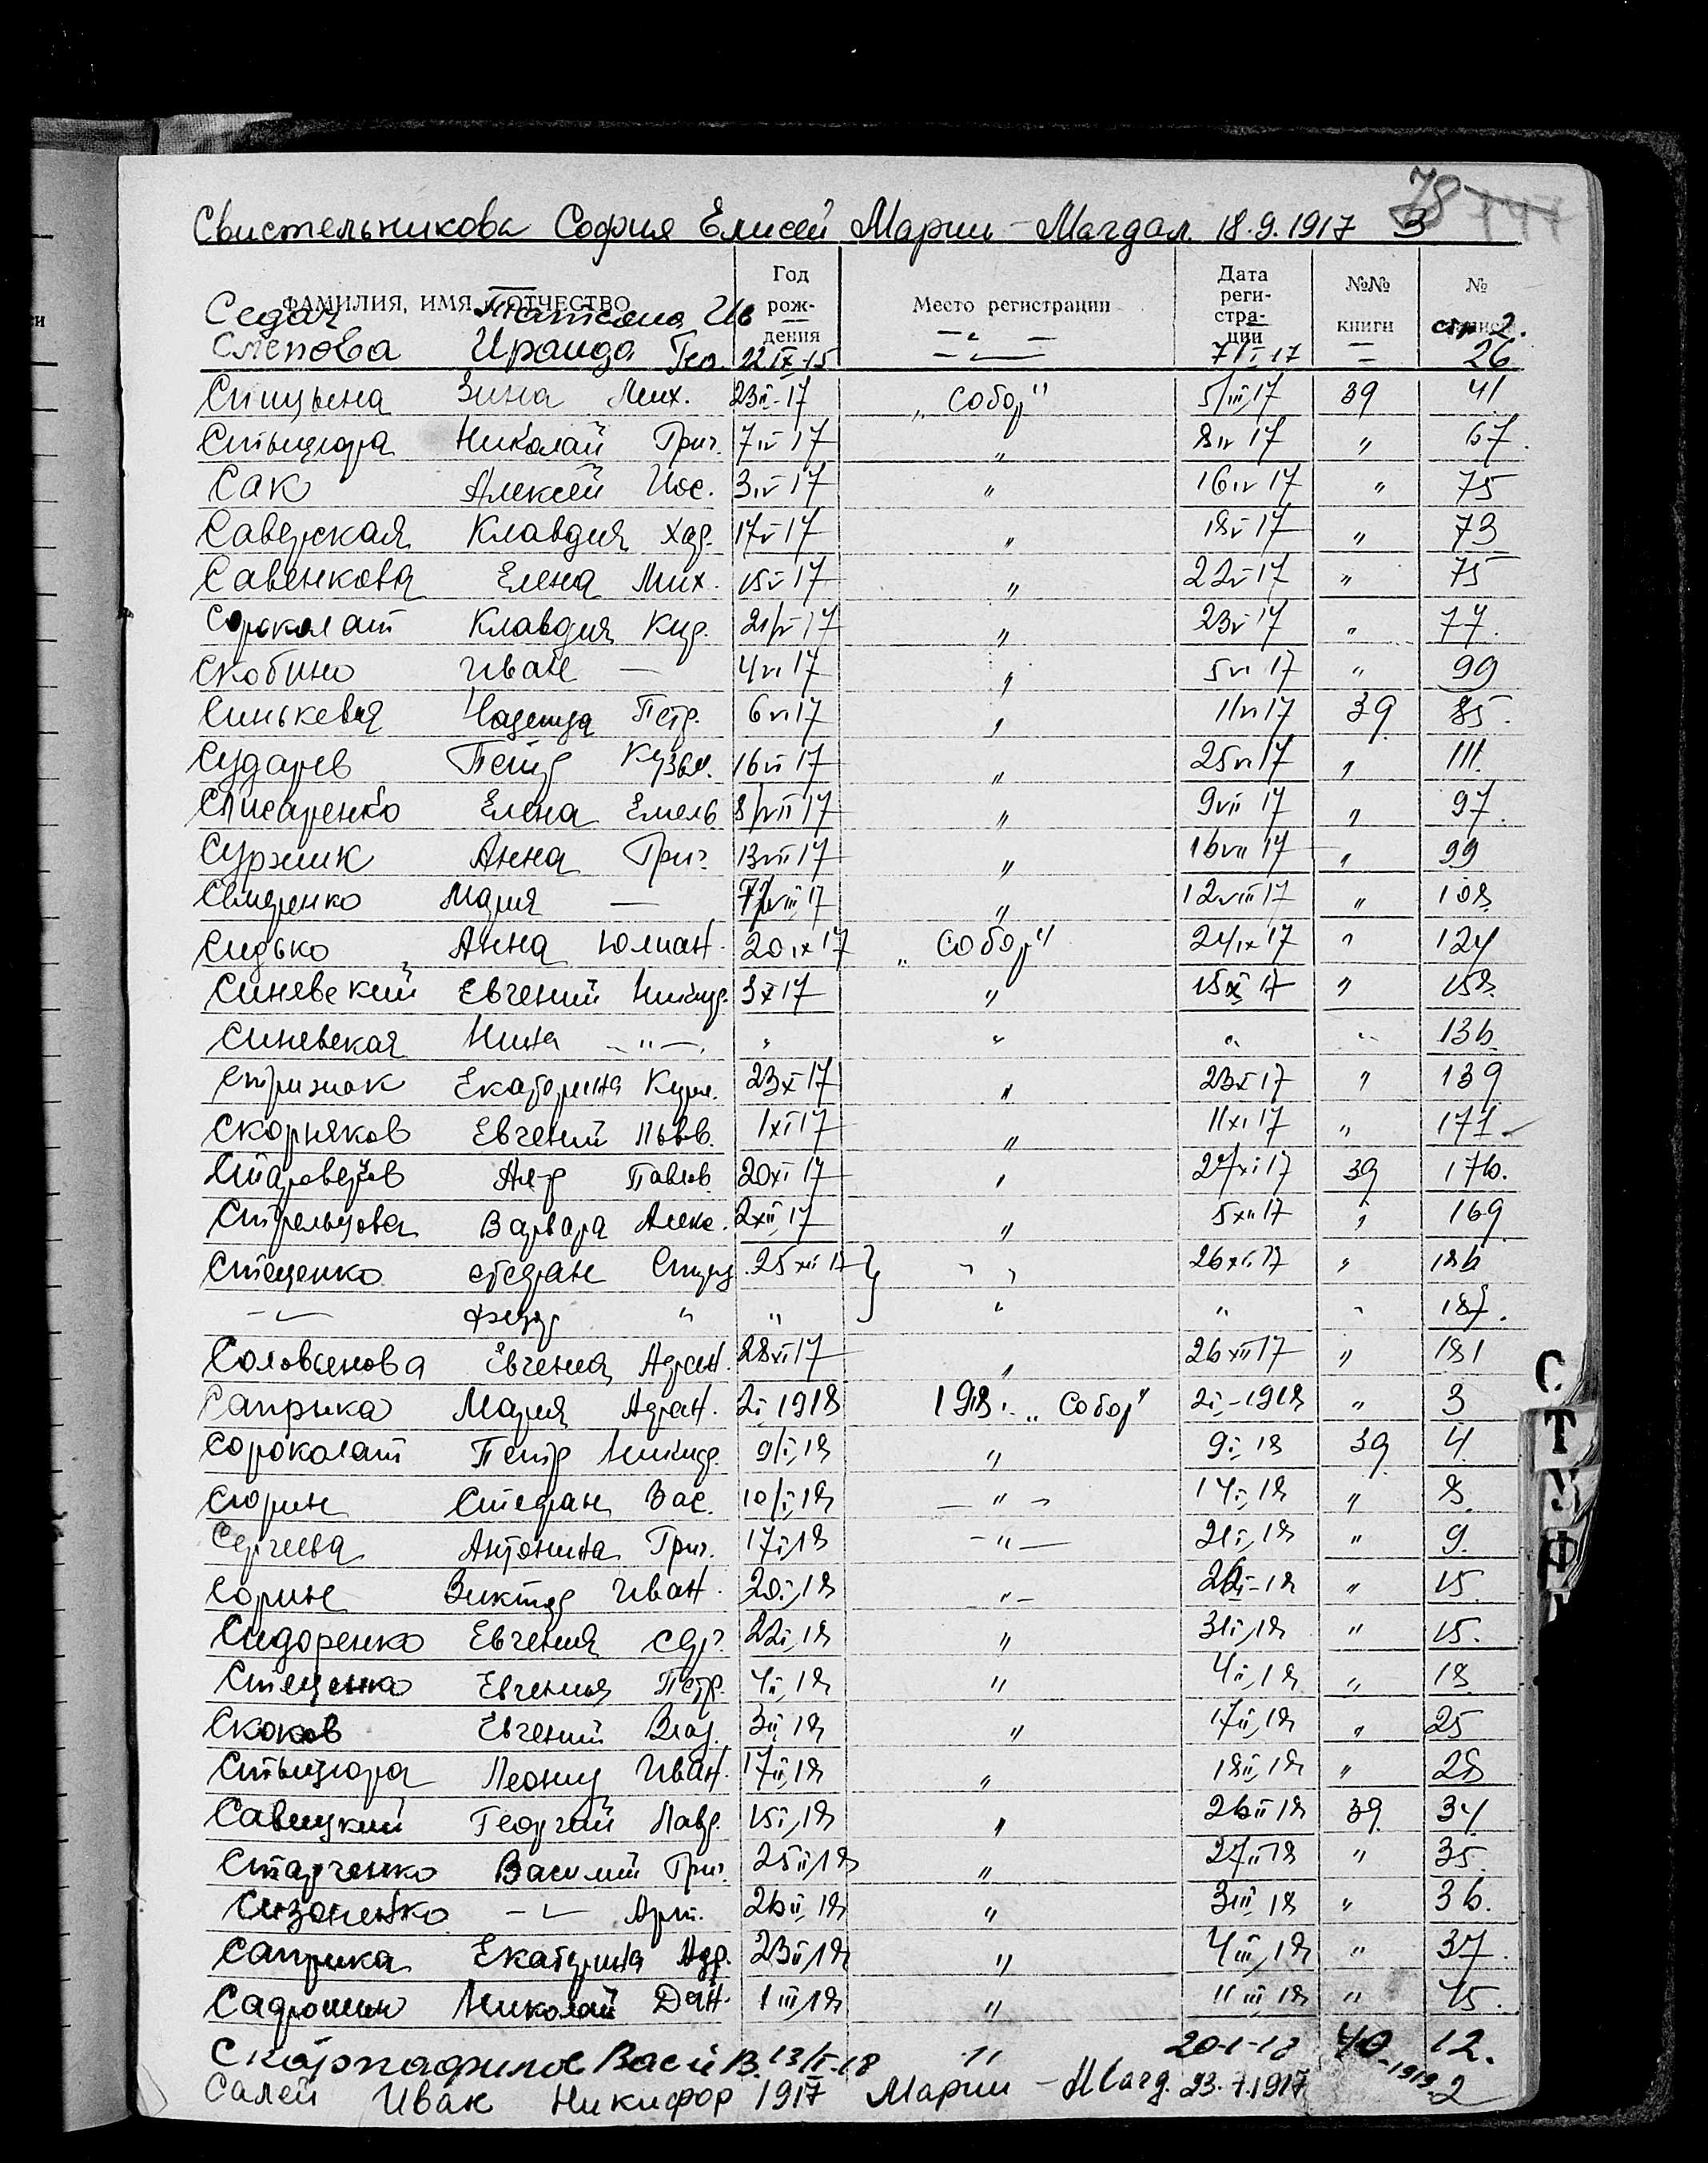 78
Свистельникова София Елисей Марии-Магдал. 18.9.1917 3
ФАМИЛИЯ, ИМЯ, ОТЧЕСТВО Год рождения Место регистрации Дата регистрации №№ книги №
Седач Татьяна Ив — " — стр 2.
Слепова Ираида Гео. 22 IX-15 — " — 7/I-17 = 26
Спицына Зина Мих. 23 II-17 „Собор" 5/III 17 39 41
Стыцюра Николай Григ. 7 IV 17 " 8 IV 17 " 67.
Сак Алексей Иос. 3 IV 17 " 16 IV 17 " 75
Саверская Клавдия Хар. 17 V 17 " 18 V 17 " 73
Савенкова Елена Мих. 15 V 17 " 22 V 17 " 75
Сороколат Клавдия Кир. 21/V 17 " 23 V 17 " 77.
Скобино Иван — 4 VI 17 " 5 VI 17 " 99
Синькевая Надежда Петр. 6 VI 17 " 11 VI 17 39 85.
Сударев Петр Кузьм. 16 VI 17 " 25 VI 17 " 111.
Слисаренко Елена Емель 8/VII 17 " 9 VII 17 " 97.
Суржик Анна Григ. 13 VII 17 " 16 VII 17 " 99
Свиденко Мария — VIII 17 " 12 VIII 17 " 108.
Сидько Анна Юлиан. 20 IX 17 „Собор" 24 IX 17 " 124
Синявский Евгений Никиф. 3 X 17 " 15 X 17 " 158.
Синевская Нина — " — " " " " 136.
Стрижак Екатерина Курил. 23 X 17 " 23 X 17 " 139
Скорняков Евгений Львов. 1 XI 17 " 11 XI 17 " 171
Староверов Алекр Павлов. 20 XI 17 " 27 XI 17 39 176.
Стрельцова Варвара Алекс. 2 XII 17 " 5 XII 17 " 169
Стеценко Стефан 25 XII 17 } " 26 XII 17 " 186
— " — Федор " " " " " 187.
Соловьенова Евгения Афан. 28 XI 17 " 26 XII 17 " 181
Саприка Мария Афан. 2 I 1918 1918. „Собор" 2 I-1918 " 3
Сороколат Петр Никиф. 9/I, 18 " 9 I, 18 39 4.
Сюрин Стефан Вас. 10/I, 18 — " — 14 I, 18 " 8.
Сергеева Антонина Григ. 17 I, 18 — " — 21 I, 18 " 9.
Сорин Виктор Иван. 20 I, 18 " — I-18 " 15.
Сидоренко Евгения Сер. 22 I, 18 " 31 I, 18 " 15.
Стеценко Евгения Петр. 4 II, 18 " 4 II, 18 " 18.
Скоков Евгений Влад. 3 II, 18 " 17 II, 18 " 25
Стыцюра Леонид Иван. 17 II, 18 " 18 II, 18 " 28
Савицкий Георгий Лавр. 15 I, 18 " 26 II 18 39 34.
Старченко Василий Григ. 25 II, 18 " 27 II 18 " 35.
Сизоненко — " — Арт. 26 II, 18 " 3 III, 18 " 36.
Саприка Екатерина Адр. 23 II, 18 " 4 III, 18 " 37.
Садрошин Николай Дан. 1 III, 18 " 11 III, 18 " 45.
Васи В. 13/I-18 " 20-I-18 40-1919 12.
Салей Иван Никифор 1917 Марии-Магд. 23.7.1917 2
С
Т
У
Ф